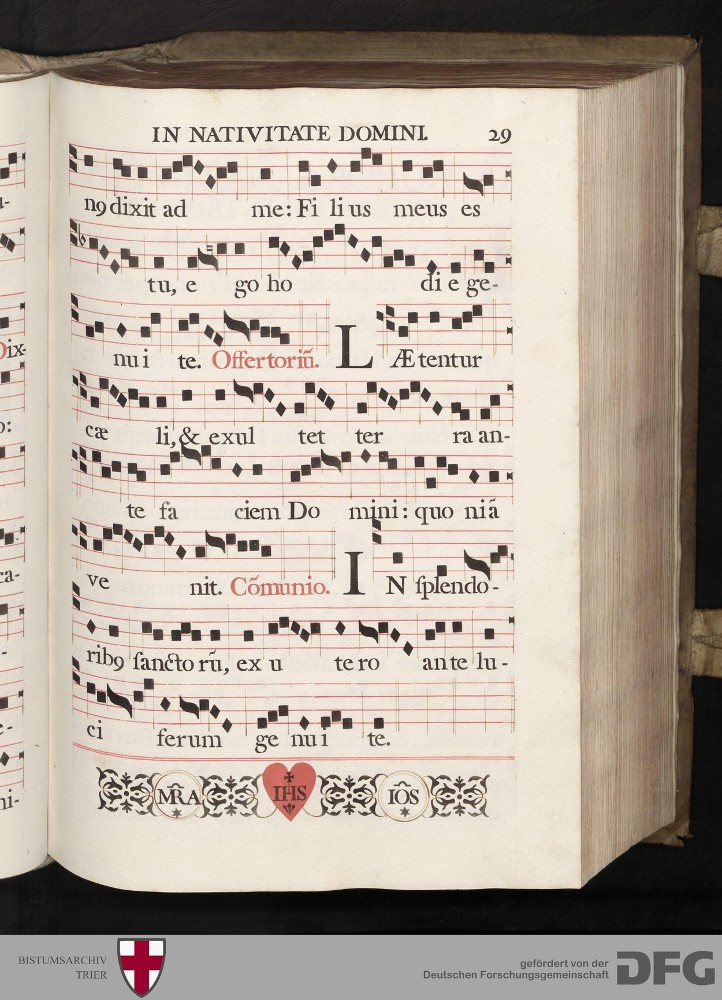 IN NATIVITATE DOMINI. 29
n9 dixit ad me: Fi li us meus es
tu, e go ho di e ge-
nu i te. Offertoriũ. L Ætentur
cæ li, & exul tet ter ra an-
te fa ciem Do mini: quo niã
ve nit. Cõmunio. I N ſplendo-
rib9 ſancto rũ, ex u te ro ante lu-
ci ferum ge nu i te.
MR̃A IHS IÕS
BISTUMSARCHIV
TRIER
gefördert von der
Deutschen Forschungsgemeinschaft
DFG